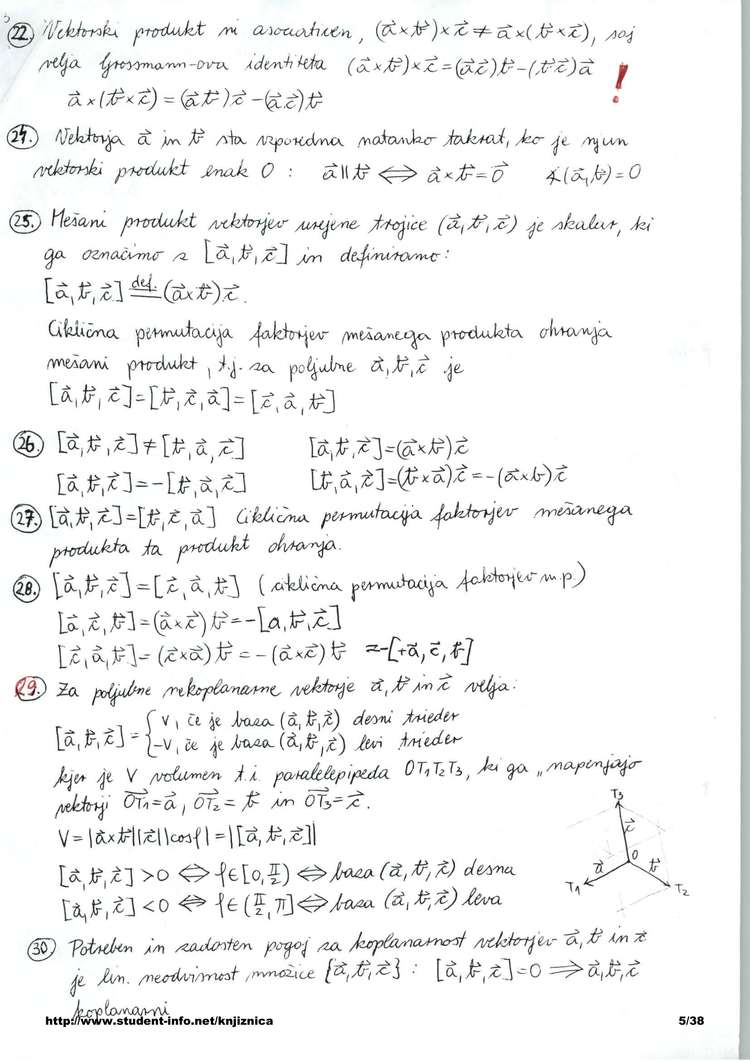 22. Vektorski produkt ni asociativen, (a⃗×b⃗)×c⃗ ≠ a⃗×(b⃗×c⃗), saj
velja Grossmann-ova identiteta (a⃗×b⃗)×c⃗=(a⃗c⃗)b⃗-(b⃗c⃗)a⃗ !
a⃗×(b⃗×c⃗)=(a⃗b⃗)c⃗-(a⃗c⃗)b⃗
24. Vektorja a⃗ in b⃗ sta vzporedna natanko takrat, ko je njun
vektorski produkt enak 0 : a⃗∥b⃗ ⟺ a⃗×b⃗=0⃗ ∢(a⃗,b⃗)=0
25. Mešani produkt vektorjev urejene trojice (a⃗,b⃗,c⃗) je skalar, ki
ga označimo z [a⃗,b⃗,c⃗] in definiramo:
[a⃗,b⃗,c⃗] def. = (a⃗×b⃗)c⃗.
Ciklična permutacija faktorjev mešanega produkta ohranja
mešani produkt, t.j. za poljubne a⃗,b⃗,c⃗ je
[a⃗,b⃗,c⃗]=[b⃗,c⃗,a⃗]=[c⃗,a⃗,b⃗]
26. [a⃗,b⃗,c⃗]≠[b⃗,a⃗,c⃗] [a⃗,b⃗,c⃗]=(a⃗×b⃗)c⃗
[a⃗,b⃗,c⃗]=-[b⃗,a⃗,c⃗] [b⃗,a⃗,c⃗]=(b⃗×a⃗)c⃗=-(a⃗×b)c⃗
27. [a⃗,b⃗,c⃗]=[b⃗,c⃗,a⃗] Ciklična permutacija faktorjev mešanega
produkta ta produkt ohranja.
28. [a⃗,b⃗,c⃗]=[c⃗,a⃗,b⃗] (ciklična permutacija faktorjev m.p.)
[a⃗,c⃗,b⃗]=(a⃗×c⃗)b⃗=-[a,b⃗,c⃗]
[c⃗,a⃗,b⃗]=(c⃗×a⃗)b⃗=-(a⃗×c⃗)b⃗ =-[+a⃗,c⃗,b⃗]
29. Za poljubne nekoplanarne vektorje a⃗,b⃗ in c⃗ velja:
[a⃗,b⃗,c⃗]={V, če je baza (a⃗,b⃗,c⃗) desni trieder
-V, če je baza (a⃗,b⃗,c⃗) levi trieder
kjer je V volumen t.i. paralelepipeda OT₁T₂T₃, ki ga „napenjajo
vektorji OT₁⃗=a⃗, OT₂⃗=b⃗ in OT₃⃗=c⃗.
V=|a⃗×b⃗||c⃗||cosφ|=|[a⃗,b⃗,c⃗]|
[a⃗,b⃗,c⃗]>0 ⟺ φ∈[0,π/2) ⟺ baza (a⃗,b⃗,c⃗) desna
[a⃗,b⃗,c⃗]<0 ⟺ φ∈(π/2,π] ⟺ baza (a⃗,b⃗,c⃗) leva
T₃
c⃗
a⃗ O b⃗
T₁ T₂
30. Potreben in zadosten pogoj za koplanarnost vektorjev a⃗,b⃗ in c⃗
je lin. neodvisnost množice {a⃗,b⃗,c⃗} : [a⃗,b⃗,c⃗]=0 ⟹ a⃗,b⃗,c⃗
koplanarni
http://www.student-info.net/knjiznica 5/38